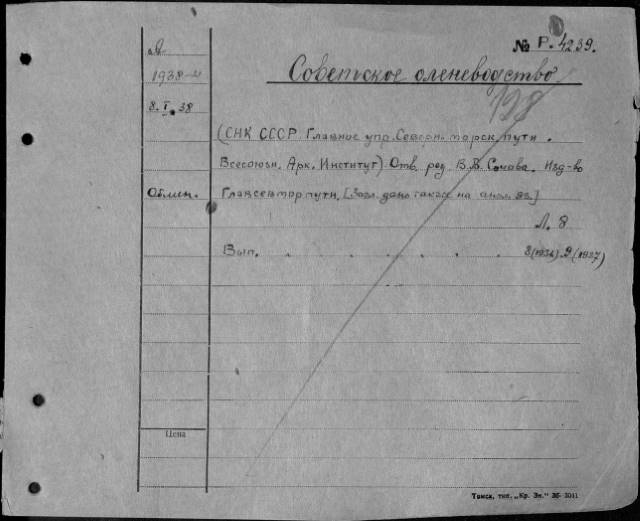 № Р. 4239.
Советское оленеводство
128
1938
8.I.38
(СНК СССР. Главное упр. Северн. морск. пути.
Всесоюзн. Арк. Институт) Отв. ред. В.Б. Сочава. Изд-во
Обмен.
Главсевморпути. [Загл. дано также на англ. яз.]
Л. 8
Вып. . . . . . . . 8(1936) 9(1937)
Цена
Томск, тип. „Кр. Зн." 36-3011